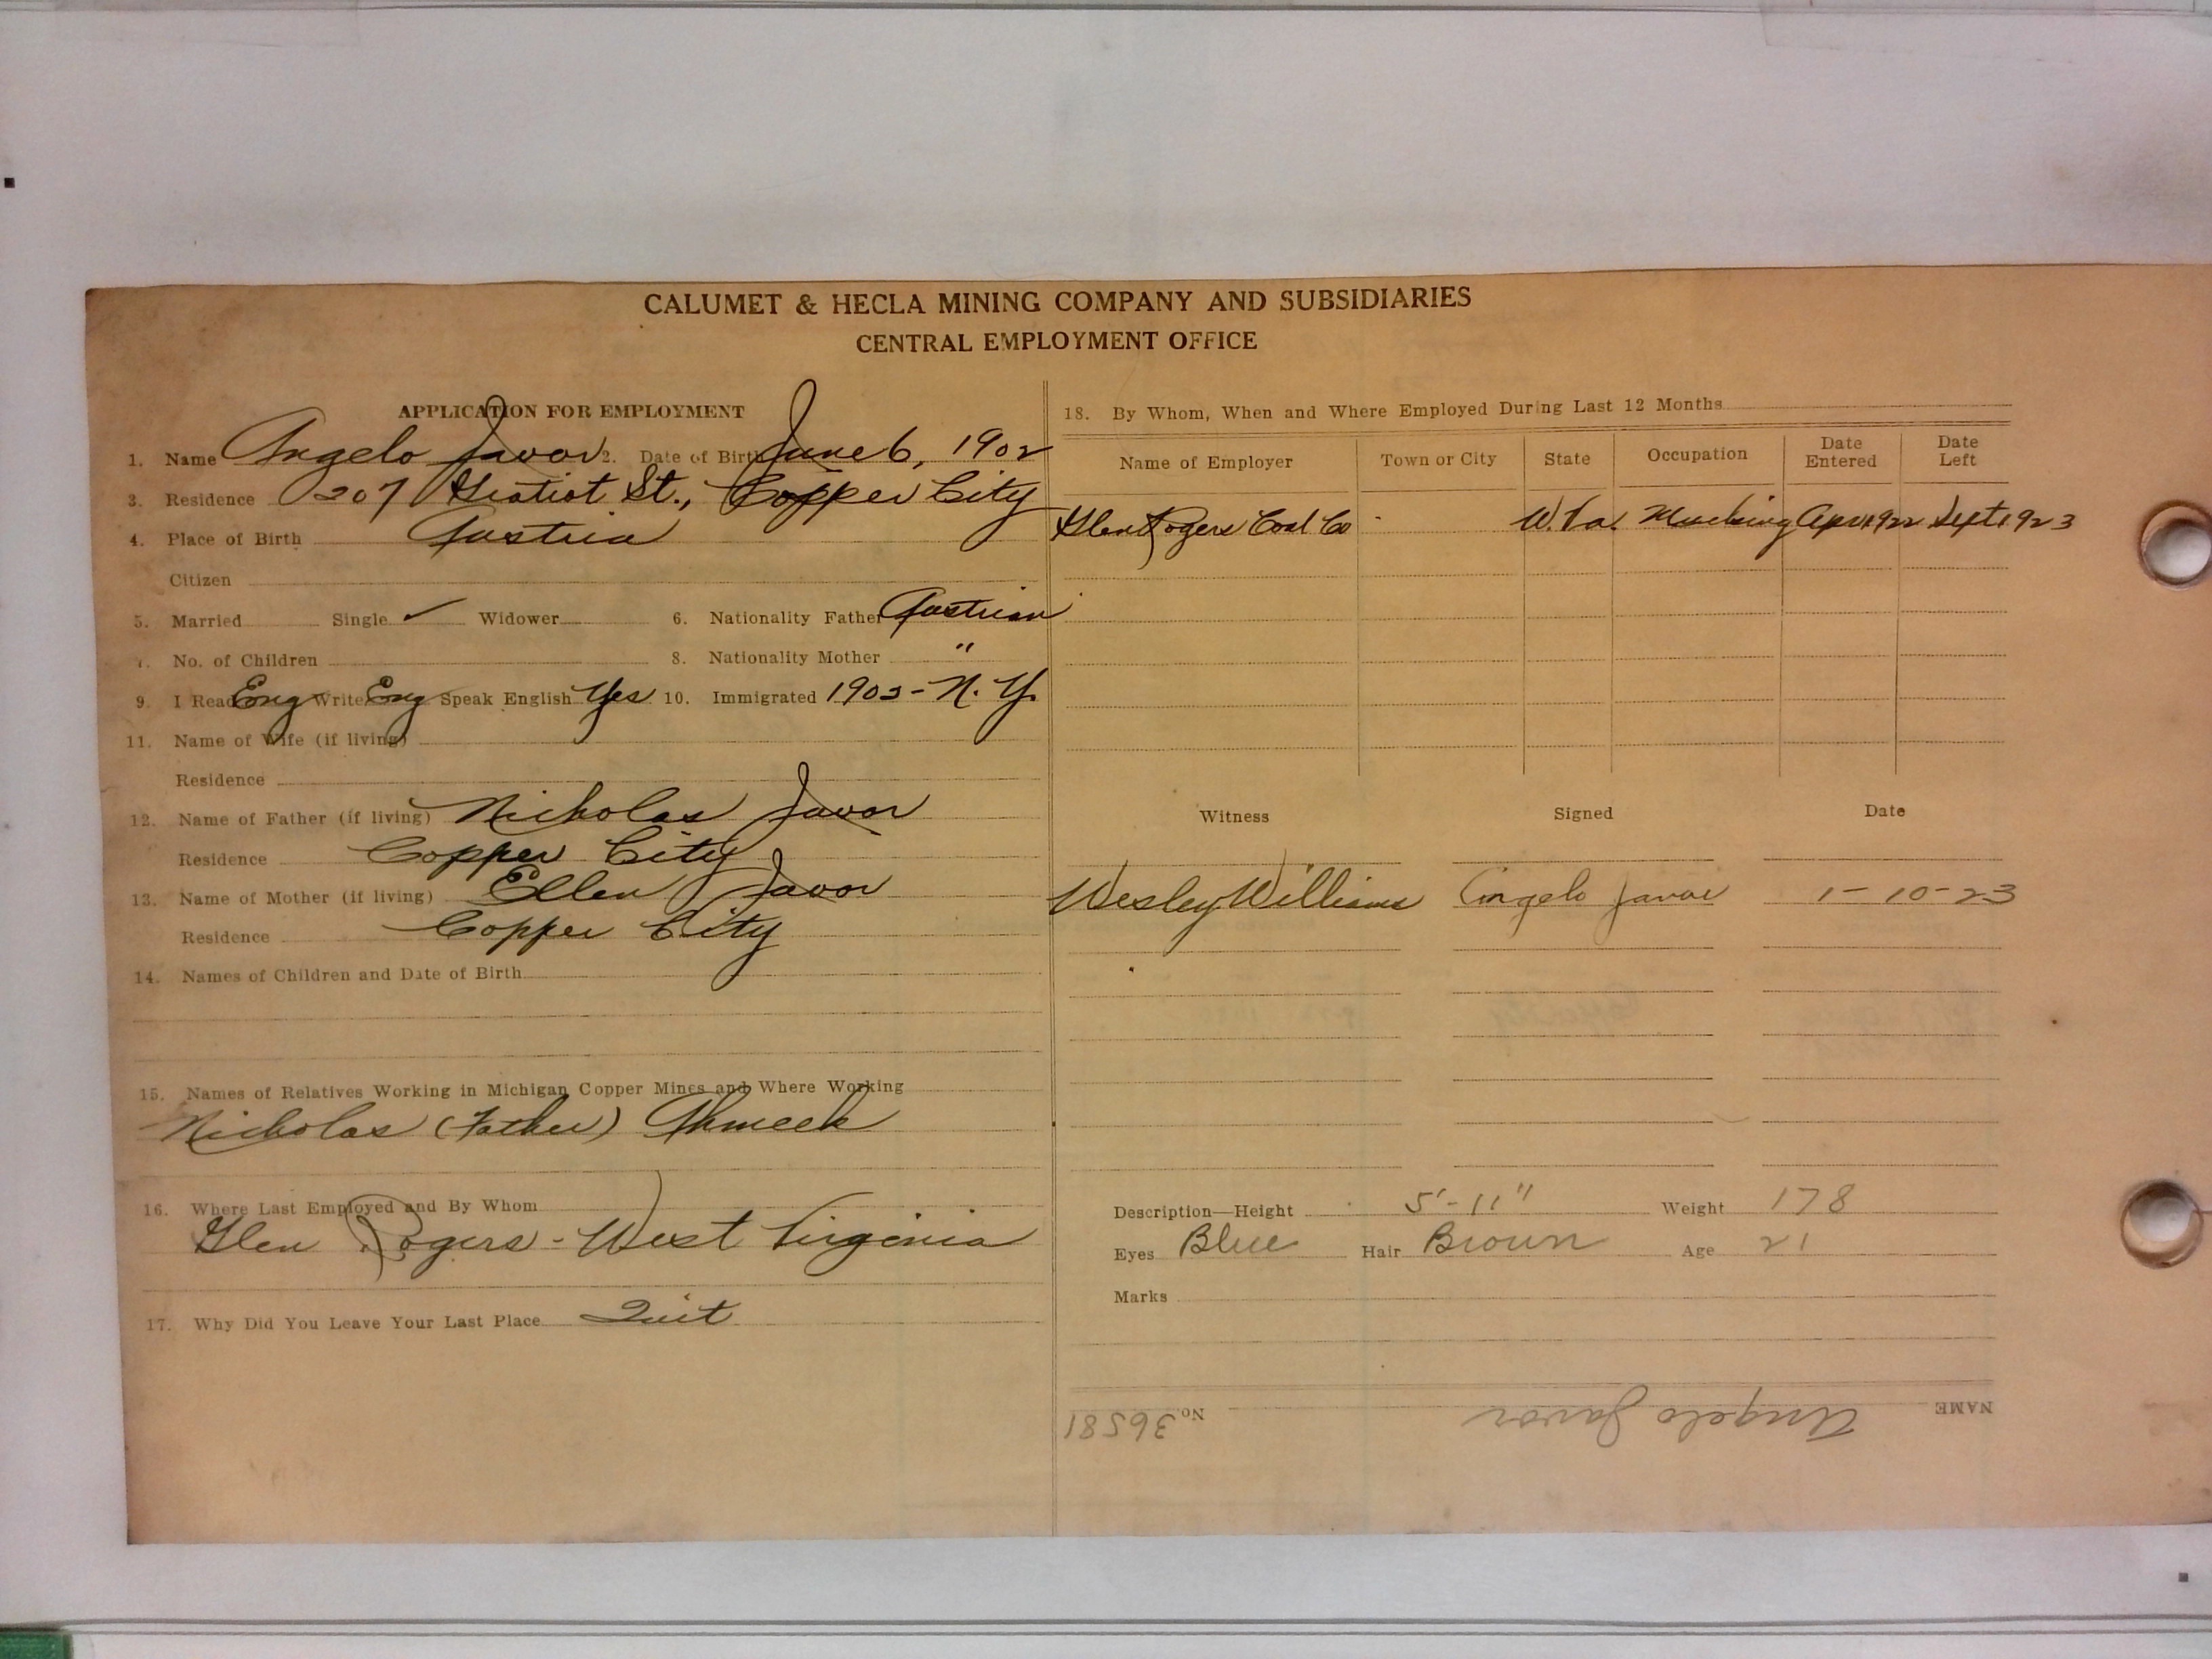 CALUMET & HECLA MINING COMPANY AND SUBSIDIARIES
CENTRAL EMPLOYMENT OFFICE
APPLICATION FOR EMPLOYMENT
1. Name Angelo Javor 2. Date of Birth June 6, 1902
3. Residence 207 Gratiot St., Copper City
4. Place of Birth Austria
Citizen
5. Married Single ✓ Widower 6. Nationality Father Austrian
7. No. of Children 8. Nationality Mother "
9. I Read Eng Write Eng Speak English Yes 10. Immigrated 1903 - N. Y.
11. Name of Wife (if living)
Residence
12. Name of Father (if living) Nicholas Javor
Residence Copper City
13. Name of Mother (if living) Ellen Javor
Residence Copper City
14. Names of Children and Date of Birth
15. Names of Relatives Working in Michigan Copper Mines and Where Working
Nicholas (Father) Ahmeek
16. Where Last Employed and By Whom
Glen Rogers - West Virginia
17. Why Did You Leave Your Last Place Quit
18. By Whom, When and Where Employed During Last 12 Months
Name of Employer Town or City State Occupation Date Entered Date Left
Glen Rogers Coal Co W. Va. Mucking Apr 1922 Sept 1923
Witness Signed Date
Wesley Williams Angelo Javor 1-10-23
Description—Height 5'-11" Weight 178
Eyes Blue Hair Brown Age 21
Marks
NAME Angelo Javor No. 36581